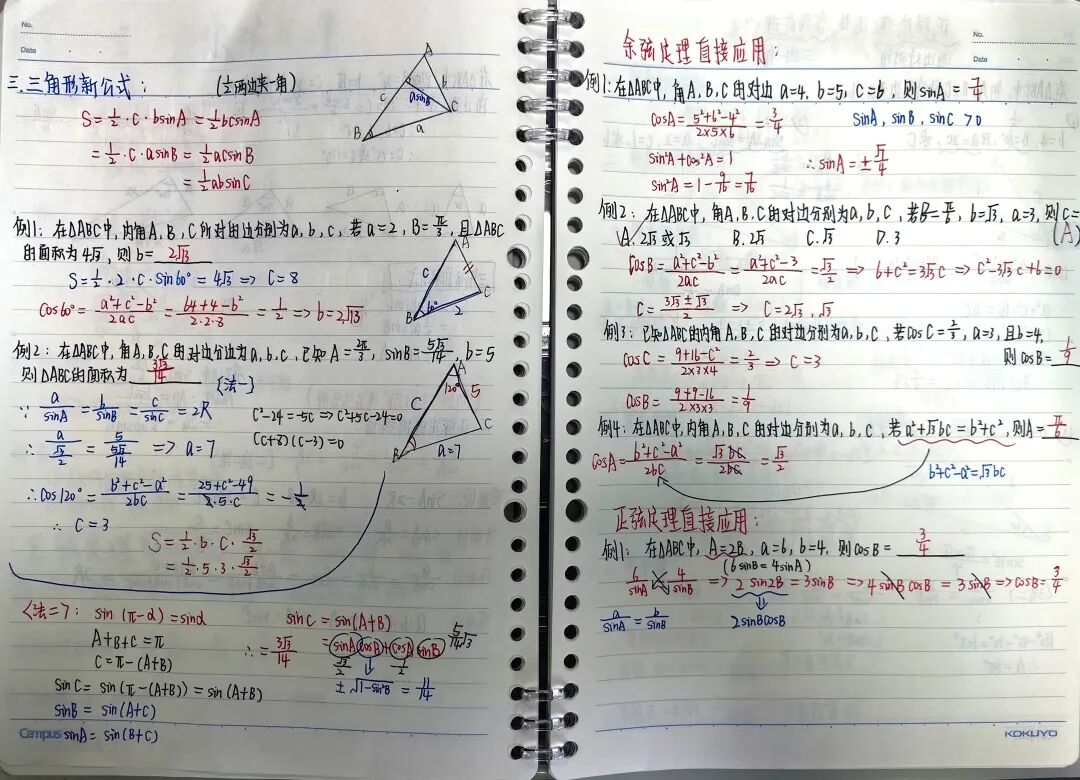 No.
Date
三.三角形新公式: (½两边夹一角)
A
c b
asinB
B a C
S=½·c·bsinA=½bcsinA
=½·c·asinB=½acsinB
=½absinC
例1: 在△ABC中,内角A,B,C所对的边分别为a,b,c,若a=2,B=π/3,且△ABC
的面积为4√3,则b= 2√3
S=½·2·c·sin60°=4√3 => c=8
cos60°=(a²+c²-b²)/2ac=(64+4-b²)/(2·2·8)=1/2 => b=2√13
A
c
C
B 60° 2
例2: 在△ABC中,角A,B,C的对边分边为a,b,c,已知A=2π/3, sinB=5√3/14, b=5
则△ABC的面积为 3√3/14
{法一}
∵ a/sinA=b/sinB=c/sinC=2R
c²-24=-5c => c²+5c-24=0
(c+8)(c-3)=0
∴ a/(√3/2)=5/(5√3/14) => a=7
A
120° 5
c C
B a=7
∴cos120°=(b²+c²-a²)/2bc=(25+c²-49)/(2·5·c)=-1/2
∴ c=3
S=½·b·c·√3/2
=½·5·3·√3/2
<法二>: sin(π-α)=sinα
A+B+C=π
C=π-(A+B)
sinC=sin(π-(A+B))=sin(A+B)
sinB=sin(A+C)
sinA=sin(B+C)
sinC=sin(A+B)
=sinAcosB+cosAsinB
5/14√3
√3/2 1/2
±√(1-sin²B)=11/14
∴=3√3/14
Campus
余弦定理直接应用:
No.
Date
例1: 在△ABC中,角A,B,C的对边a=4,b=5,c=6,则sinA=√7/4
cosA=(5²+6²-4²)/(2×5×6)=3/4
sinA,sinB,sinC>0
sin²A+cos²A=1
∴sinA=±√7/4
sin²A=1-9/16=7/16
例2: 在△ABC中,角A,B,C的对边分别为a,b,c,若B=π/6,b=√3,a=3,则c=
(A)
A.2√3或√3 B.2√3 C.√3 D.3
cosB=(a²+c²-b²)/2ac=(a²+c²-3)/2ac=√3/2 => 6+c²=3√3c => c²-3√3c+6=0
c=(3√3±√3)/2 => c=2√3,√3
例3: 已知△ABC的内角A,B,C的对边分别为a,b,c,若cosC=2/3,a=3,且b=4,
则cosB=1/9
cosC=(9+16-c²)/(2×3×4)=2/3 => c=3
cosB=(9+9-16)/(2×3×3)=1/9
例4: 在△ABC中,内角A,B,C的对边分别为a,b,c,若a²+√3bc=b²+c²,则A=π/6
cosA=(b²+c²-a²)/2bc=√3bc/2bc=√3/2
b²+c²-a²=√3bc
正弦定理直接应用:
例1: 在△ABC中,A=2B,a=6,b=4,则cosB= 3/4
(6sinB=4sinA)
6/sinA 4/sinB => 2sin2B=3sinB => 4sinBcosB=3sinB => cosB=3/4
a/sinA=b/sinB
2sinBcosB
KOKUYO